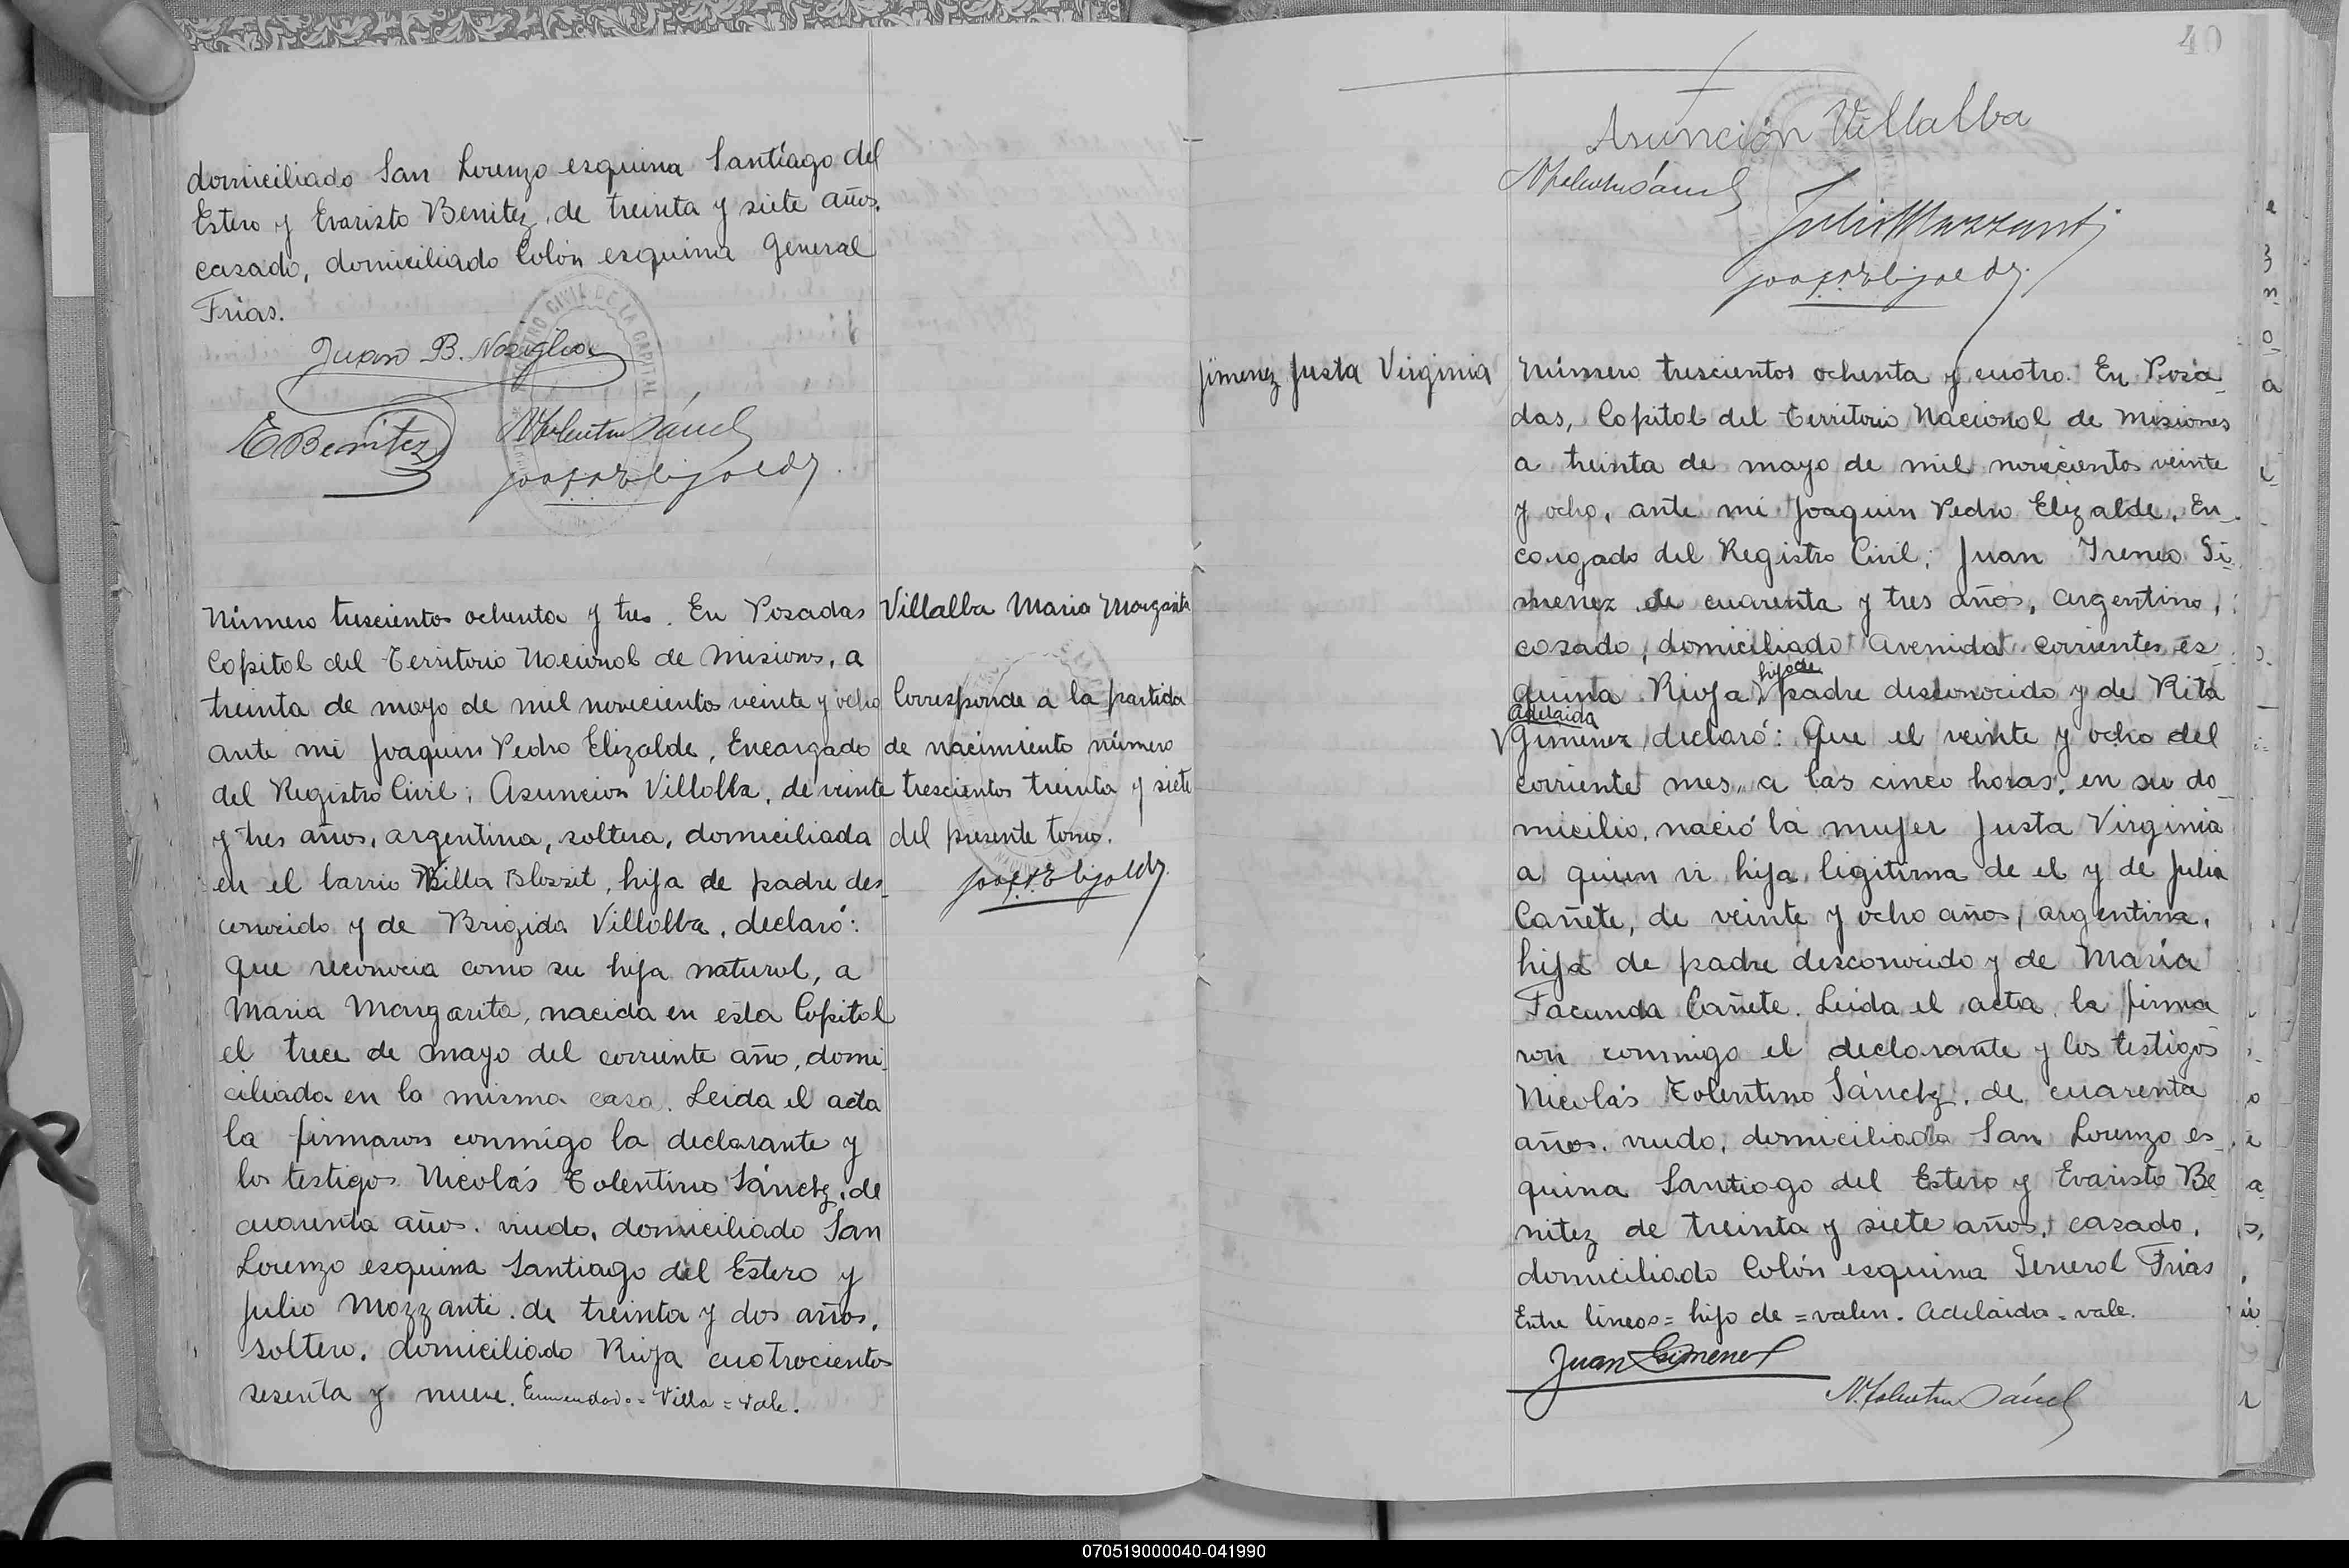 domiciliado San Lorenzo esquina Santiago del
Estero y Evaristo Benitez, de treinta y siete años,
casado, domiciliado Colón esquina General
Frias.
Juan B. Nosiglia
E Benitez
N Tolentino Sánch
REGISTRO CIVIL DE LA CAPITAL
Número trescientos ochenta y tres. En Posadas
Capital del Territorio Nacional de Misiones, a
treinta de mayo de mil novecientos veinte y ocho
ante mi Joaquin Pedro Elizalde, Encargado
del Registro Civil; Asuncion Villalba, de veinte
y tres años, argentina, soltera, domiciliada
en el barrio Villa Blosset, hija de padre des_
conocido y de Brigida Villalba, declaró:
que reconocia como su hija natural, a
Maria Margarita, nacida en esta Capital
el trece de mayo del corriente año, domi_
ciliada en la misma casa. Leida el acta
la firmaron conmigo la declarante y
los testigos Nicolás Tolentino Sánchz, de
cuarenta años, viudo, domiciliado San
Lorenzo esquina Santiago del Estero y
Julio Mozzanti, de treinta y dos años,
soltero, domiciliado Rioja cuatrocientos
sesenta y nueve. Enmendado = Villa = vale.
Villalba Maria Margarita
Corresponde a la partida
de nacimiento número
trescientos treinta y siete
del presente tomo.
40
Asunción Villalba
N Tolentino Sánch
Julio Mozzanti
Jimenez Justa Virginia
Número trescientos ochenta y cuatro. En Posa_
das, Capital del Territorio Nacional de Misiones
a treinta de mayo de mil novecientos veinte
y ocho, ante mi Joaquin Pedro Elizalde, En_
cargado del Registro Civil; Juan Ireneo Gi_
menez de cuarenta y tres años, argentino,
casado, domiciliado Avenida Corrientes es_
quina Rioja, hijo de padre desconocido y de Rita
Adelaida
Gimenez, declaró: Que el veinte y ocho del
corriente mes, a las cinco horas, en su do_
micilio, nació la mujer Justa Virginia
a quien vi hija legitima de el y de Julia
Cañete, de veinte y ocho años, argentina,
hija de padre desconocido y de Maria
Facunda Cañete. Leida el acta, la firma
ron conmigo el declarante y los testigos
Nicolás Tolentino Sánchz, de cuarenta
años, viudo, domiciliado San Lorenzo es_
quina Santiago del Estero y Evaristo Be_
nitez de treinta y siete años, casado,
domiciliado Colón esquina General Frias
Entre lineas = hijo de = valen. Adelaida = vale.
Juan Gimenez
N. Tolentino Sánch
070519000040-041990